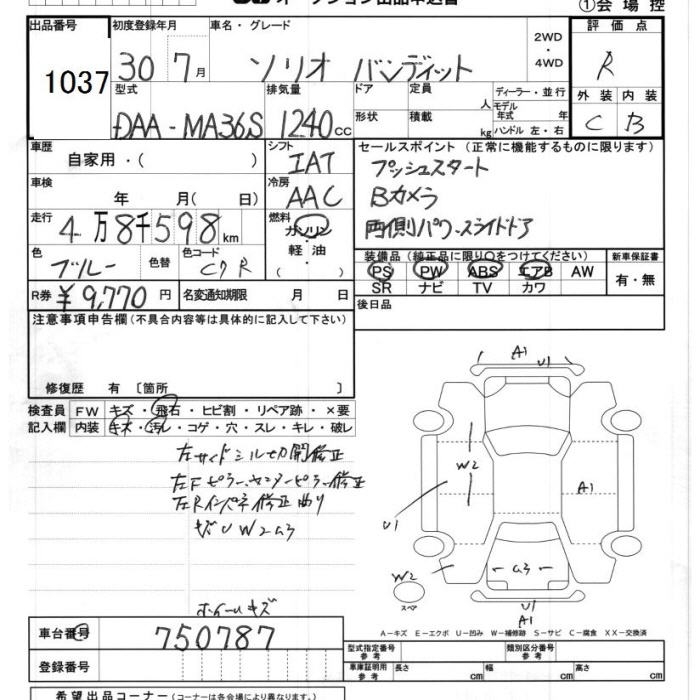 ①会場控
出品番号 1037
初度登録年月 30 7月
車名・グレード ソリオ バンディット
2WD・4WD
評価点 R
外装 内装
C B
型式 DAA-MA36S
排気量 1240cc
ドア 形状
定員 人
積載 kg
ディーラー・並行
モデル年式 年
ハンドル 左・右
車歴 自家用・( )
シフト IAT
車検 年 月( 日)
冷房 AAC
走行 4万8千598km
燃料 ガソリン・軽油 ( )
色 ブルー 色替
色コード CYR
R券 ¥9,770円
名変通知期限 月 日
セールスポイント (正常に機能するものに限ります)
プッシュスタート
Bカメラ
両側パワースライドドア
装備品 (純正品に限り○をつけてください)
PS PW ABS エアB AW
SR ナビ TV カワ
新車保証書
有・無
後日品
注意事項申告欄(不具合内容等は具体的に記入して下さい)
修復歴 有 〔箇所 〕
検査員記入欄
FW キズ・飛石・ヒビ割・リペア跡・×要
内装 キズ・汚レ・コゲ・穴・スレ・キレ・破レ
左サイドシル切開修正
左Fピラー、センターピラー修正
左Rインパネ修正曲り
キズU W2 A3
ホイールキズ
A1 U1
W2
A1
U1
W2
スペア
A3
U1
A1
A-キズ E-エクボ U-凹み W-補修跡 S-サビ C-腐食 XX-交換済
車台番号 750787
登録番号
型式指定番号 参考
類別区分番号 参考
車庫証明用 参考 長さ cm 幅 cm 高さ cm
希望出品コーナー (コーナーは各会場により異なります。)